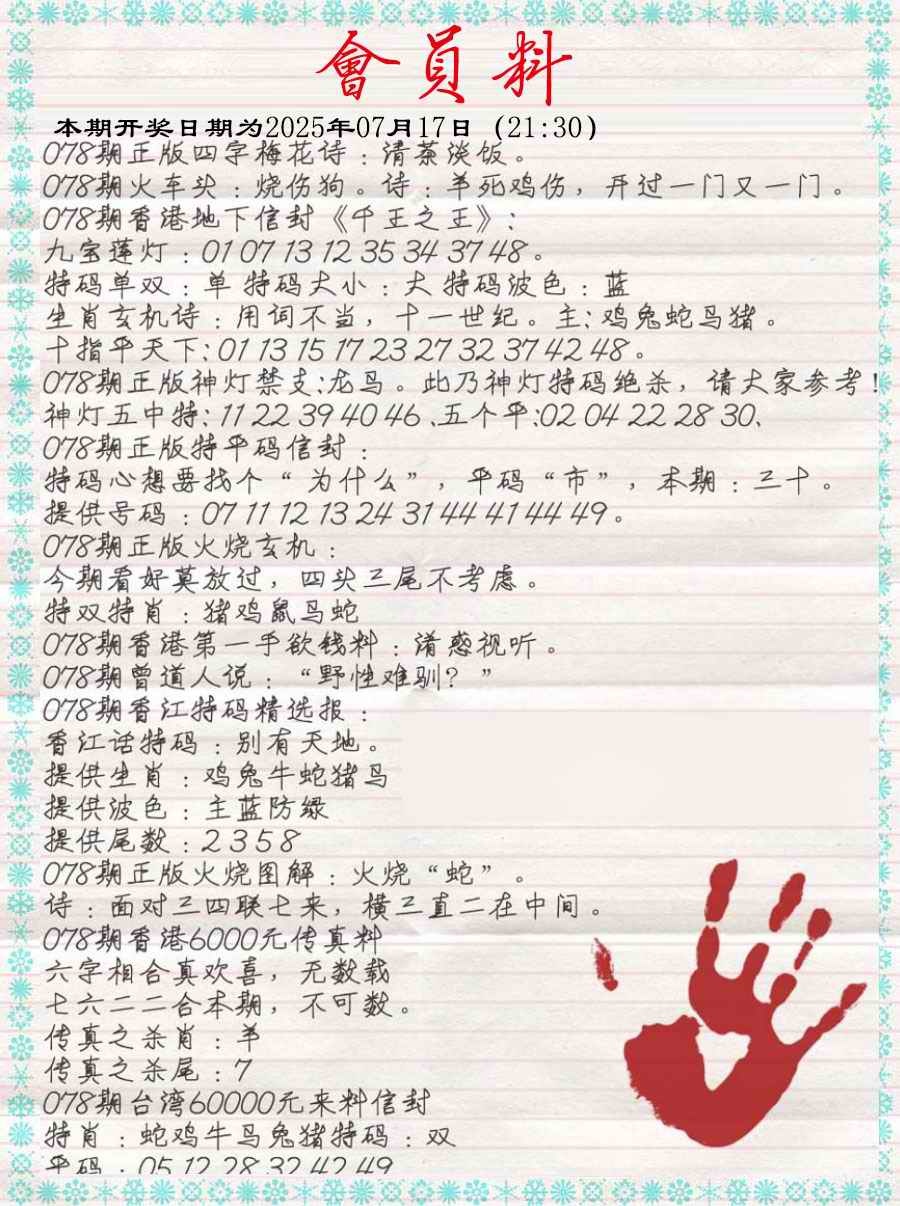 會員料
本期开奖日期为2025年07月17日（21:30）
078期正版四字梅花诗：清茶淡饭。
078期火车头：烧伤狗。诗：羊死鸡伤，开过一门又一门。
078期香港地下信封《千王之王》:
九宝莲灯：01 07 13 12 35 34 37 48。
特码单双：单 特码大小：大 特码波色：蓝
生肖玄机诗：用词不当，十一世纪。主:鸡兔蛇马猪。
十指平天下:01 13 15 17 23 27 32 37 42 48。
078期正版神灯禁支:龙马。此乃神灯特码绝杀，请大家参考!
神灯五中特:11 22 39 40 46 、五个平:02 04 22 28 30、
078期正版特平码信封：
特码心想要找个“为什么”，平码“市”，本期：三十。
提供号码：07 11 12 13 24 31 44 41 44 49。
078期正版火烧玄机：
今期看好莫放过，四头三尾不考虑。
特双特肖：猪鸡鼠马蛇
078期香港第一手欲钱料：淆惑视听。
078期曾道人说：“野性难驯？”
078期香江特码精选报：
香江话特码：别有天地。
提供生肖：鸡兔牛蛇猪马
提供波色：主蓝防绿
提供尾数：2 3 5 8
078期正版火烧图解：火烧“蛇”。
诗：面对三四联七来，横三直二在中间。
078期香港6000元传真料
六字相合真欢喜，无数载
七六二二合本期，不可数。
传真之杀肖：羊
传真之杀尾：7
078期台湾60000元来料信封
特肖：蛇鸡牛马兔猪特码：双
平码：05 12 28 32 42 49